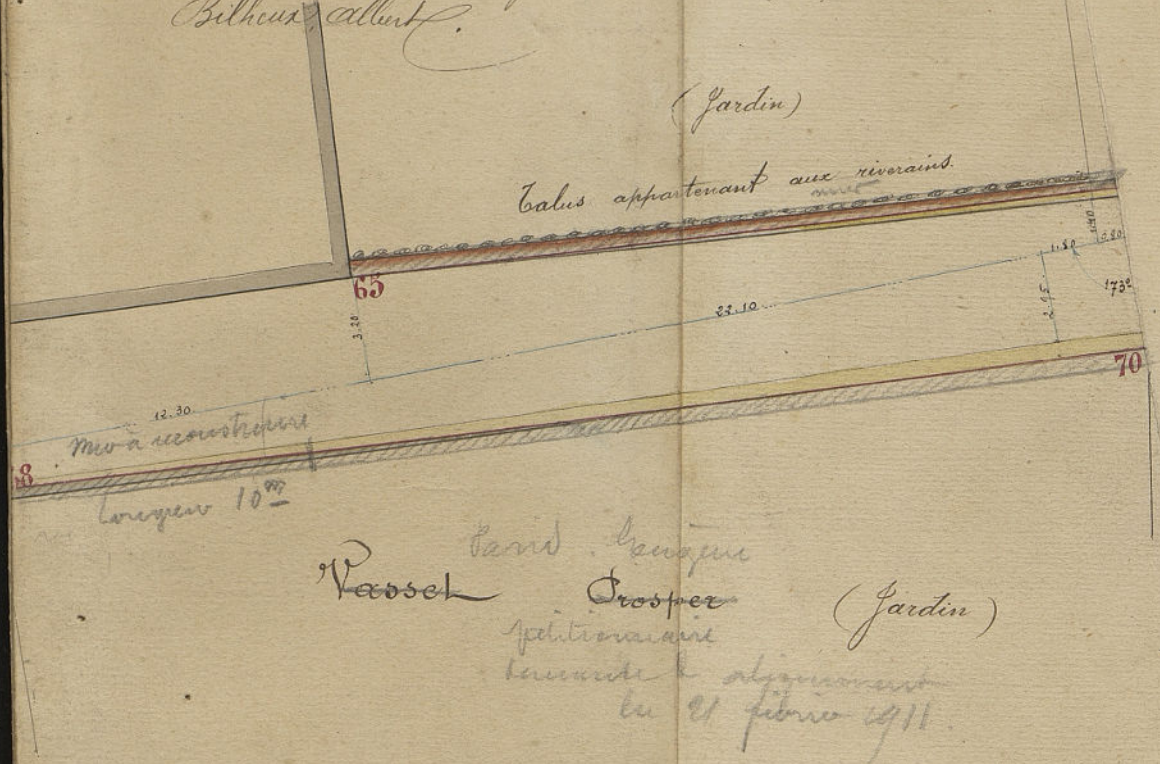 Bilheux Albert
(Jardin)
Talus appartenant aux riverains.
mur
65
3.20
22.10
1.80
1.40
0.80
173°
2.95
70
12.30
mur à reconstruire
68
longueur 10m
David Eugène
Vassel Prosper
(Jardin)
pétitionnaire
demande l' alignement
le 21 février 1911.